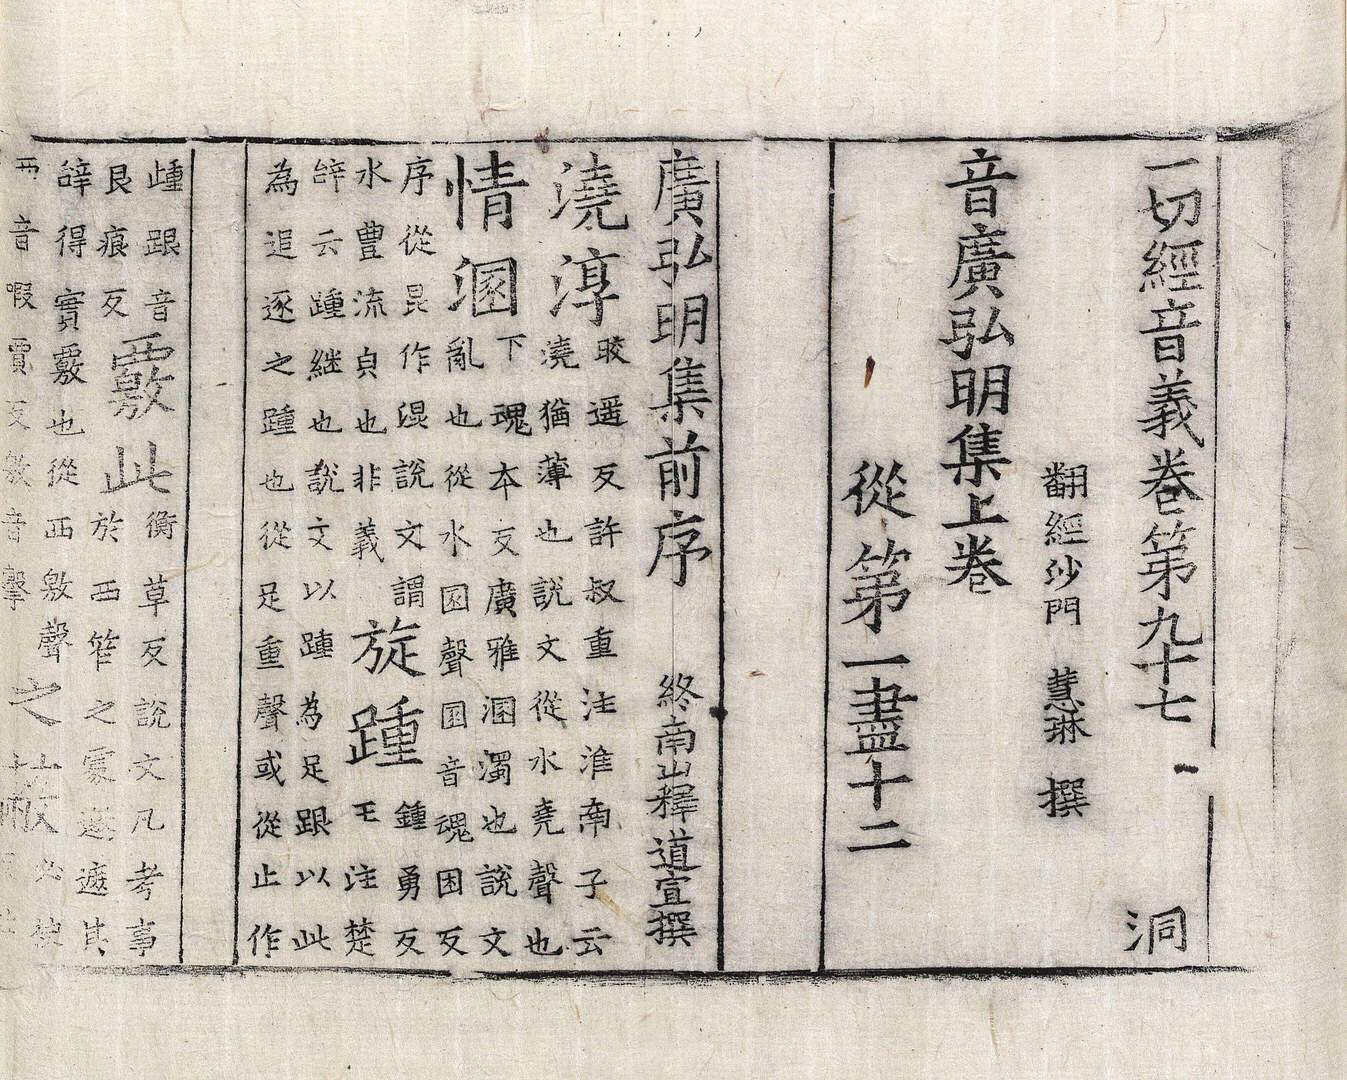 一切經音義卷第九十七 洞
翻經沙門 慧琳 撰
音廣弘明集上卷
從第一盡十二
廣弘明集前序 終南山釋道宣撰
澆淳 晈遥反許叔重注淮南子云
澆猶薄也說文從水堯聲也
情溷 下魂本反廣雅溷濁也說文
亂也從水圂聲圂音魂困反
序從昆作混說文謂
水豊流皃也非義
旋踵 鍾勇反
王注楚
辝云踵継也說文以踵為足跟以此
為追逐之踵也從足重聲或從止作
歱跟音
艮痕反
覈此 衡草反說文凡考事
於襾笮之 遮其
辝得實覈也從襾敫聲
襾音暇賈反敫音擊
之